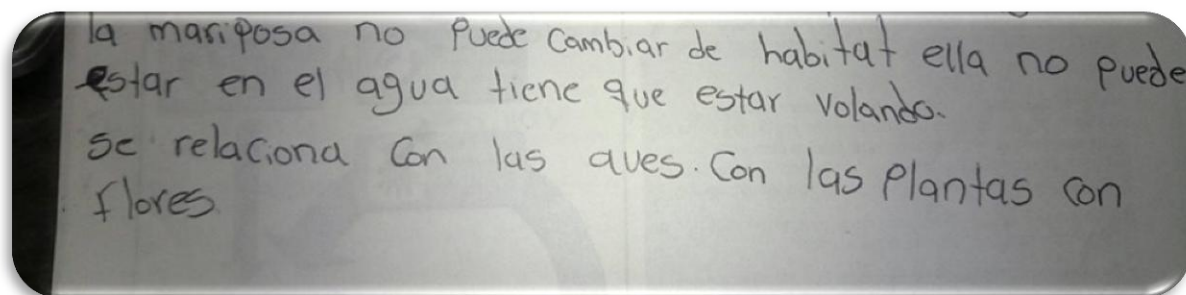 la mariposa no puede cambiar de habitat ella no puede
estar en el agua tiene que estar volando.
se relaciona con las aves. Con las plantas con
flores